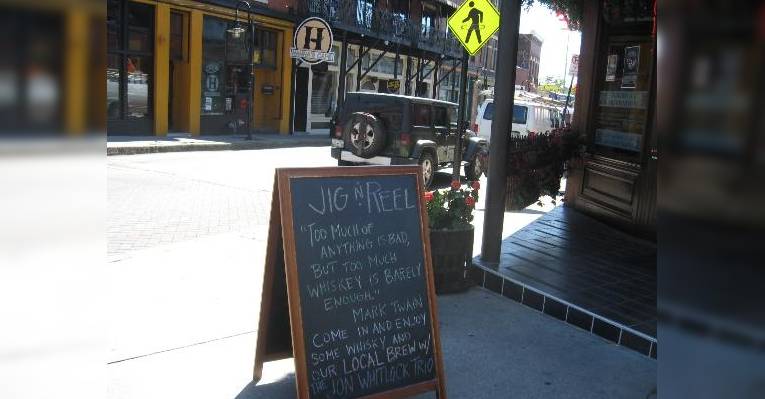 H
JIG N' REEL
"TOO MUCH OF
ANYTHING IS BAD,
BUT TOO MUCH
WHISKEY IS BARELY
ENOUGH."
MARK TWAIN
COME IN AND ENJOY
SOME WHISKY AND
OUR LOCAL BREW W/
THE JON WHITLOCK TRIO